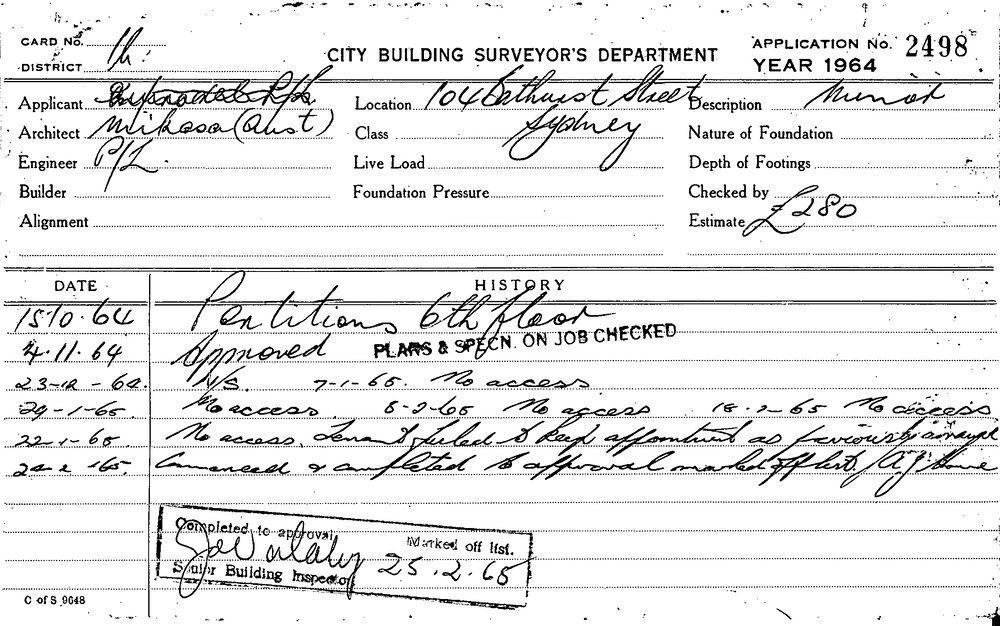 CARD No. 1h.
DISTRICT
CITY BUILDING SURVEYOR'S DEPARTMENT
APPLICATION No. 2498
YEAR 1964
Applicant
Location 104 Bathurst Street
Description Minor
Architect Mikasa (Aust)
Class Sydney
Nature of Foundation
Engineer P/L.
Live Load
Depth of Footings
Builder
Foundation Pressure
Checked by
Alignment
Estimate £280
DATE
HISTORY
15·10·64 Partitions 6th floor
4·11·64 Approved PLANS & SPECN. ON JOB CHECKED
N/S. 7-1-65. No access
29-1-65. No access 8-2-65 No access 18-2-65 No access
No access. Tenant failed to keep appointment as previously arranged
Commenced & completed to approval marked off list.
Completed to approval
Marked off list.
25.2.65
Senior Building Inspector
C of S 9648